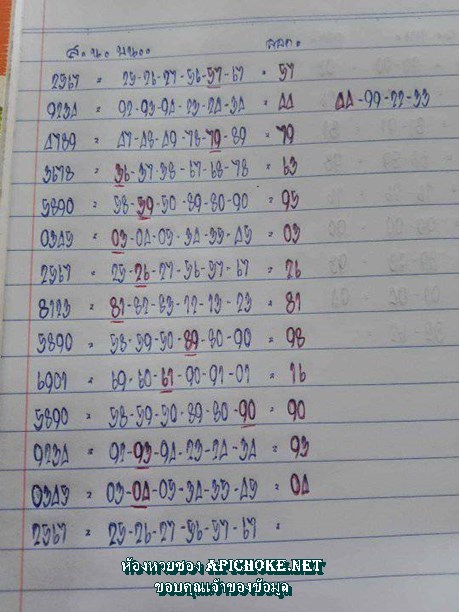 ส. น. บน.. ออก.
2567 = 25-26-27-56-57-67 = 57
9234 = 92-93-94-23-24-34 = 44 44-99-22-33
4789 = 47-48-49-78-79-89 = 79
3678 = 36-37-38-67-68-78 = 63
5890 = 58-59-50-89-80-90 = 95
0345 = 03-04-05-34-35-45 = 03
2567 = 25-26-27-56-57-67 = 26
8123 = 81-82-83-12-13-23 = 81
5890 = 58-59-50-89-80-90 = 98
6901 = 69-60-61-90-91-01 = 16
5890 = 58-59-50-89-80-90 = 90
9234 = 92-93-94-23-24-34 = 93
0345 = 03-04-05-34-35-45 = 04
2567 = 25-26-27-56-57-67 =
ห้องหวยซอง APICHOKE.NET
ขอบคุณเจ้าของข้อมูล